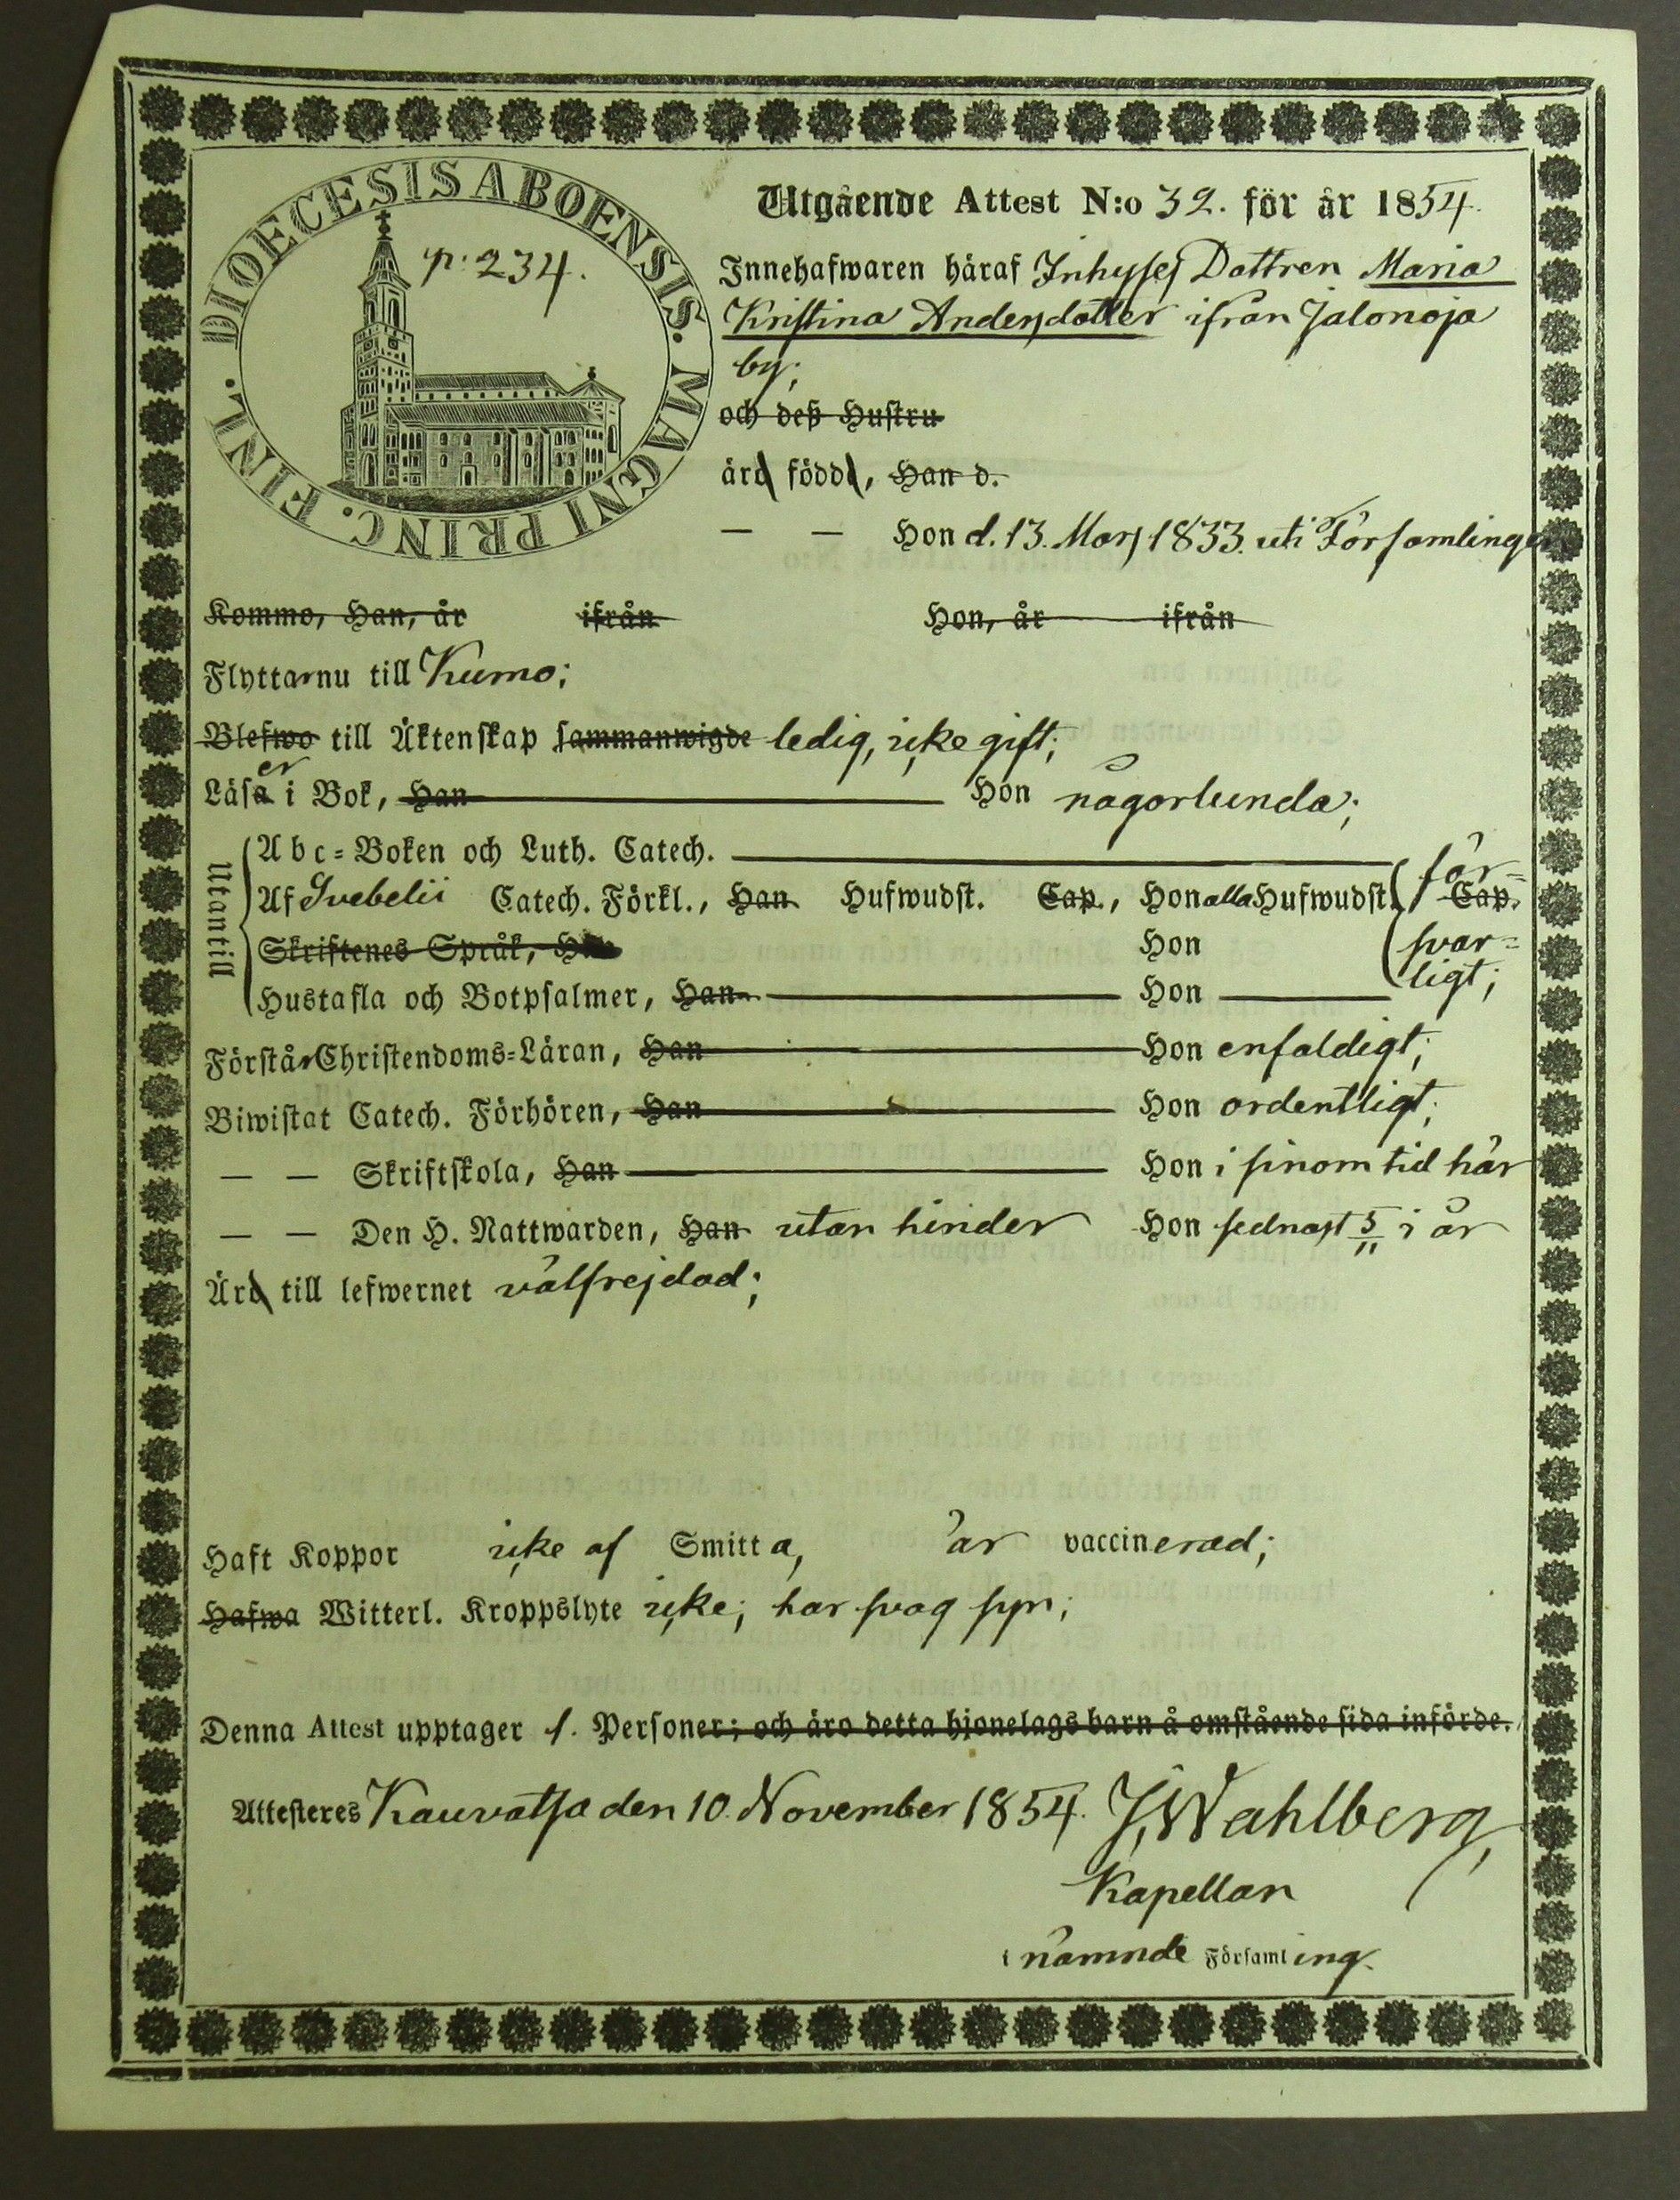 DIOECESIS ABOENSIS. MAGNI PRINC. FINL.
p. 234.
Utgående Attest N:o 32. för år 1854.
Innehafwaren häraf Inhyses Dottren Maria
Kristina Andersdotter ifrån Jalonoja
by;
och deß Hustru
äro födde, Han d.
— — Hon d. 13. Mars 1833. uti Församlingen
Kommo, Han, år ifrån Hon, år ifrån
Flyttar nu till Kumo;
Blefwo till Äktenskap sammanwigde ledig, icke gift;
Läser i Bok, Han Hon någorlunda;
Utantill
Abc-Boken och Luth. Catech.
Af Svebelii Catech. Förkl., Han Hufwudst. Cap., Hon alla Hufwudst. Cap. för-
Skriftenes Språk, Han Hon svar-
ligt;
Hustafla och Botpsalmer, Han Hon
Förstår Christendoms-Läran, Han Hon enfaldigt;
Biwistat Catech. Förhören, Han Hon ordentligt;
— — Skriftskola, Han Hon i sinom tid här
— — Den H. Nattwarden, Han utan hinder Hon sednast 5/11 i år
Äro till lefwernet välfrejdad;
Haft Koppor icke af Smitta, är vaccinerad;
Hafwa Witterl. Kroppslyte icke; har svag syn;
Denna Attest upptager 1. Personer; och äro detta hjonelags barn å omstående sida införde.
Attesteres Kauvatsa den 10. November 1854. J. Wahlberg,
Kapellan
i nämnde Församling.